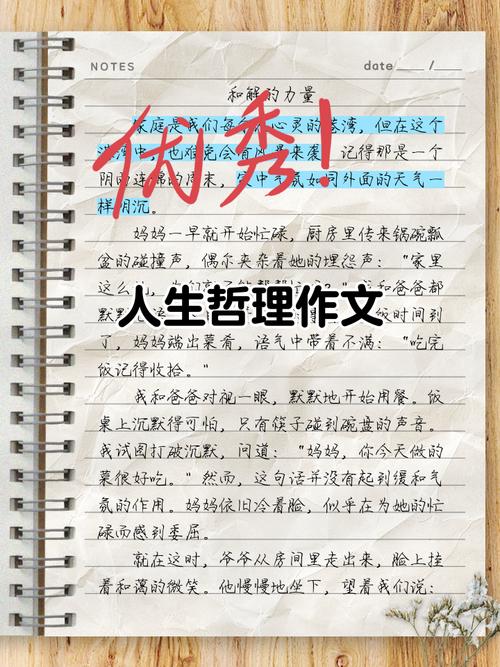 NOTES
date / 
和解的力量
优秀!
家庭是我们每个心灵的港湾，但在这个
港湾中，也难免会有风暴来袭。记得那是一个
阴雨连绵的周末，家中气氛如同外面的天气一
样阴沉。
妈妈一早就开始忙碌，厨房里传来锅碗瓢
盆的碰撞声，偶尔夹杂着她的埋怨声：“家里
这么 和爸爸都
人生哲理作文
默默 饭时间到
了，妈妈端出菜肴，语气中带着不满：“吃完
饭记得收拾。”
我和爸爸对视一眼，默默地开始用餐。饭
桌上沉默得可怕，只有筷子碰到碗盘的声音。
我试图打破沉默，问道：“妈妈，你今天做的
菜很好吃。”然而，这句话并没有起到缓和气
氛的作用。妈妈依旧冷着脸，似乎在为她的忙
碌而感到委屈。
就在这时，爷爷从房间里走出来，脸上挂
着和蔼的微笑。他慢慢地坐下，望着我们说：